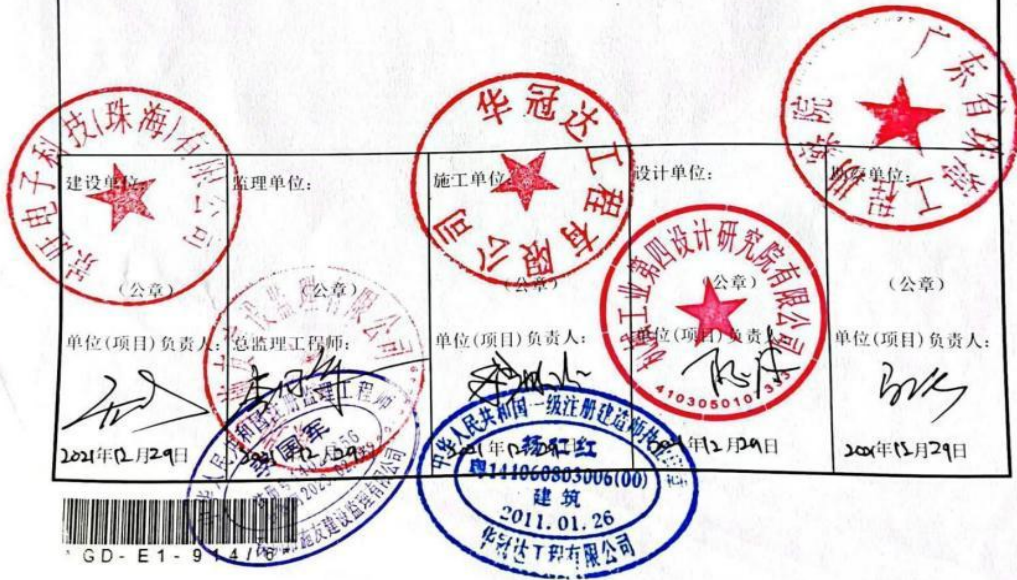 建设单位:
监理单位:
施工单位:
设计单位:
单位:
(公章)
(公章)
(公章)
(公章)
(公章)
单位(项目)负责人:
总监理工程师:
单位(项目)负责人:
单位(项目)负责人:
单位(项目)负责人:
2021年12月29日
2021年12月29日
2021年12月29日
2021年12月29日
2021年12月29日
电子科技(珠海)有限公司
建设监理有限公司
华冠达工程有限公司
工业第四设计研究院有限公司
4103050107333
广东省珠海工程勘察院
注册监理工程师
李国军
施友建设监理有限公司
中华人民共和国一级注册建造师执业印章
杨红红
粤141060803006(00)
建筑
2011.01.26
华冠达工程有限公司
GD-E1-914/6